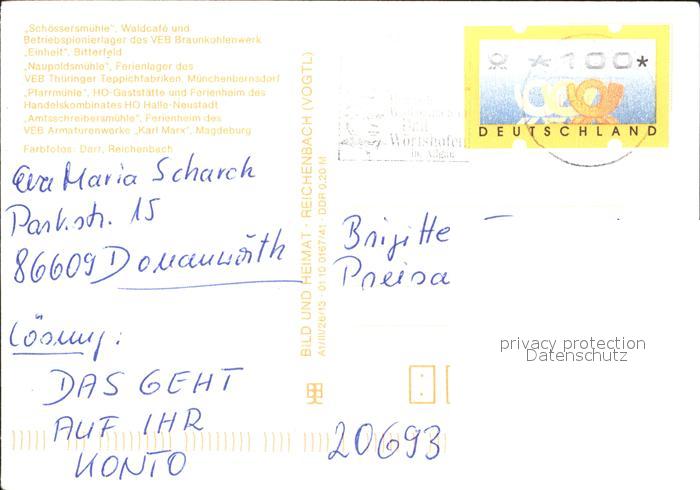 „Schössersmühle", Waldcafé und
Betriebspionierlager des VEB Braunkohlenwerk
„Einheit", Bitterfeld
„Naupoldsmühle", Ferienlager des
VEB Thüringer Teppichfabriken, Münchenbernsdorf
„Pfarrmühle", HO-Gaststätte und Ferienheim des
Handelskombinates HO Halle-Neustadt
„Amtsschreibersmühle", Ferienheim des
VEB Armaturenwerke „Karl Marx", Magdeburg
Farbfotos: Darr, Reichenbach
Eva Maria Scharch
Parkstr. 15
86609 Donauwörth
Lösung:
DAS GEHT
AUF IHR
KONTO
BILD UND HEIMAT · REICHENBACH (VOGTL)
A1/III/26/13 · 01 10 0167/41 · DDR 0,20 M
*100*
DEUTSCHLAND
Bad
Wörishofen
im Allgäu
Brigitte
Preisa
privacy protection
Datenschutz
20693